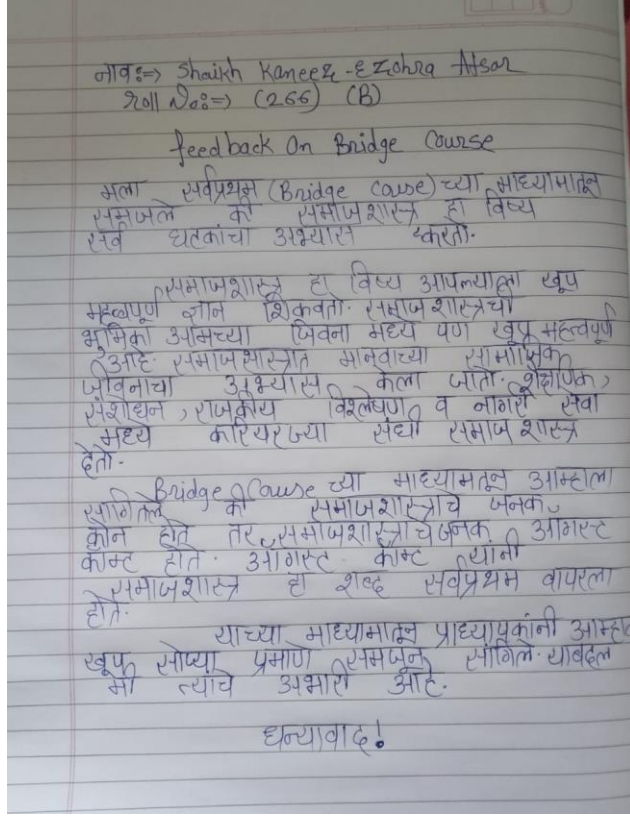 नाव :=> Shaikh Kaneez-E Zohra Afsar
roll No :=> (266) (B)
feedback On Bridge Course
मला सर्वप्रथम (Bridge Couse) च्या माध्यामातून
समजले की समाजशास्त्र हा विष्य
सर्व घटकांचा अभ्यास करतो.
समाजशास्त्र हा विषय आपल्याला खूप
महत्वपूर्ण ज्ञान शिकवतो. समाजशास्त्रची
भुमिका आमच्या जिवना मध्ये पण खूप महत्त्वपूर्ण
आहे. समाजसास्त्रात मानवाच्या सामाजिक
जीवनाचा अभ्यास केला जातो. शैक्षणिक,
संशोधन, राजकीय विश्लेषण व नागरी सेवा
मध्ये करियरज्या संधी समाज शास्त्र
देतो.
Bridge Couse च्या माध्यामतून आम्हाला
सांगितले की समाजशास्त्राचे जनक
कोन होते तर, समाजशास्त्राचे जनक आगस्ट
कॉम्ट होते. ऑगस्ट कॉम्ट यांनी
समाजशास्त्र हा शब्द सर्वप्रथम वापरला
होते.
याच्या माध्यामातून प्राध्यापकांनी आम्हा
खूप सोप्या प्रमाणे समजून सांगिले. याबद्दल
मी त्यांचे अभारी आहे.
धन्यावाद!